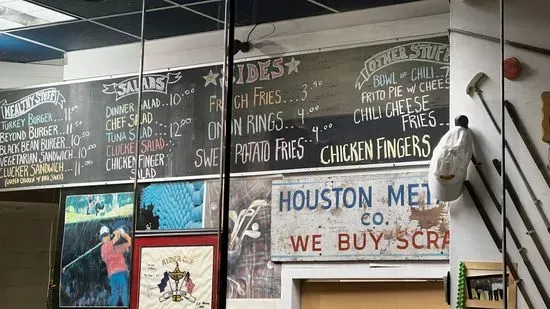 HEALTHY STUFF
TURKEY BURGER...11.
BEYOND BURGER...11.
BLACK BEAN BURGER...
VEGETARIAN SANDWICH...10.
CLUCKER SANDWICH...11.
SALADS
DINNER SALAD...10.00
CHEF SALAD
TUNA SALAD...12.00
CLUCKER SALAD
CHICKEN FINGER
SALAD
SIDES
FRENCH FRIES...3.50
ONION RINGS...4.00
SWEET POTATO FRIES...4.00
OTHER STUFF
BOWL OF CHILI..7
FRITO PIE W/ CHEESE
CHILI CHEESE
FRIES...
CHICKEN FINGERS
HOUSTON MET
CO.
WE BUY SCRA
RYDER CUP